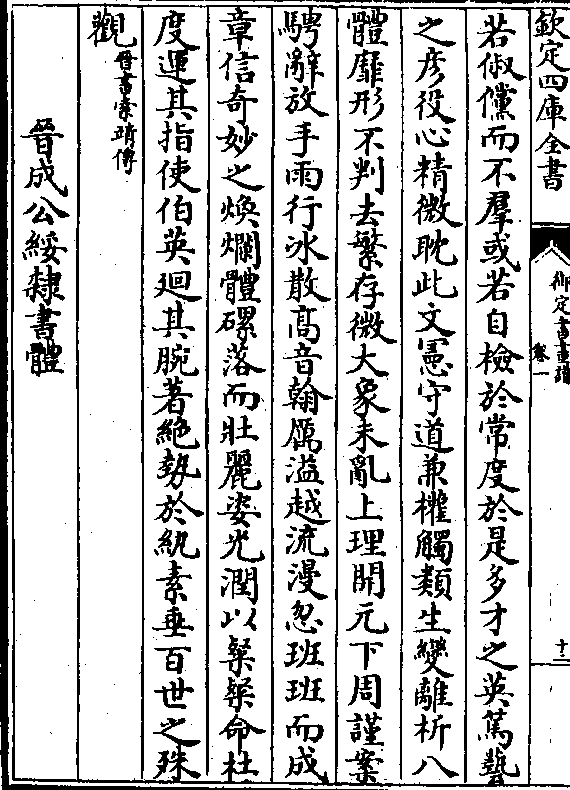 欽定四庫全書
御定書畫譜
卷一
十二
若俶儻而不羣或若自檢於常度於是多才之英篤藝
之彦役心精微耽此文憲守道兼權觸類生變離析八
體靡形不判去繁存微大象未亂上理開元下周謹案
騁辭放手雨行冰散高音翰厲溢越流漫忽班班而成
章信奇妙之煥爛體磥落而壯麗姿光潤以粲粲命杜
度運其指使伯英迴其腕著絶勢於紈素垂百世之殊
觀晉書索靖傳
晉成公綏隸書體